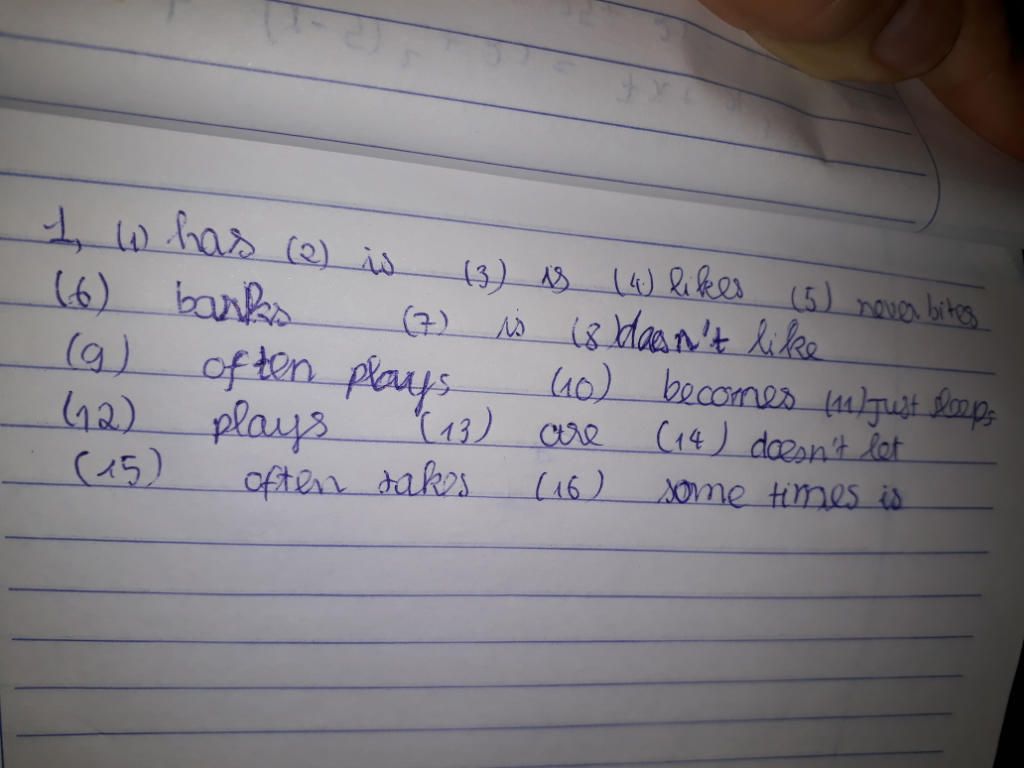 1, (1) has (2) is (3) is (4) likes (5) never bites
(6) banks (7) is (8) doesn't like
(9) often plays (10) becomes (11) just sleeps
(12) plays (13) are (14) doesn't let
(15) often takes (16) some times is